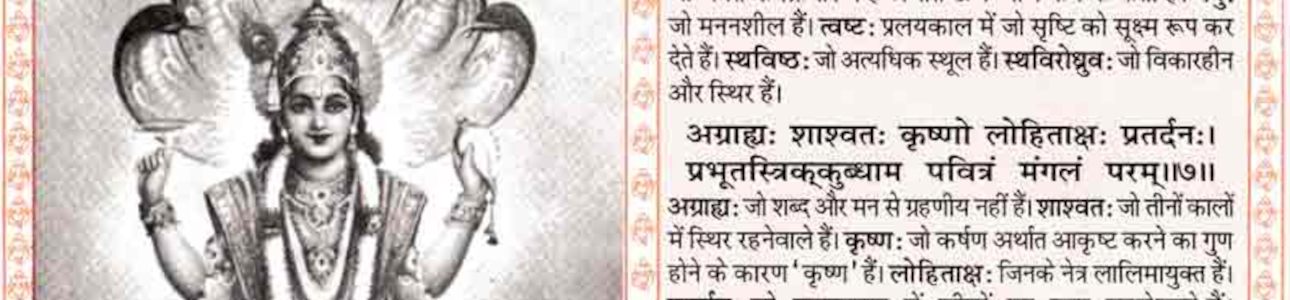 जो मननशील हैं। त्वष्ट: प्रलयकाल में जो सृष्टि को सूक्ष्म रूप कर
देते हैं। स्थविष्ठ: जो अत्यधिक स्थूल हैं। स्थविरोध्रुव: जो विकारहीन
और स्थिर हैं।
अग्राह्य: शाश्वत: कृष्णो लोहिताक्ष: प्रतर्दन:।
प्रभूतस्त्रिक्कुब्धाम पवित्रं मंगलं परम्॥७॥
अग्राह्य: जो शब्द और मन से ग्रहणीय नहीं हैं। शाश्वत: जो तीनों कालों
में स्थिर रहनेवाले हैं। कृष्ण: जो कर्षण अर्थात आकृष्ट करने का गुण
होने के कारण 'कृष्ण' हैं। लोहिताक्ष: जिनके नेत्र लालिमायुक्त हैं।